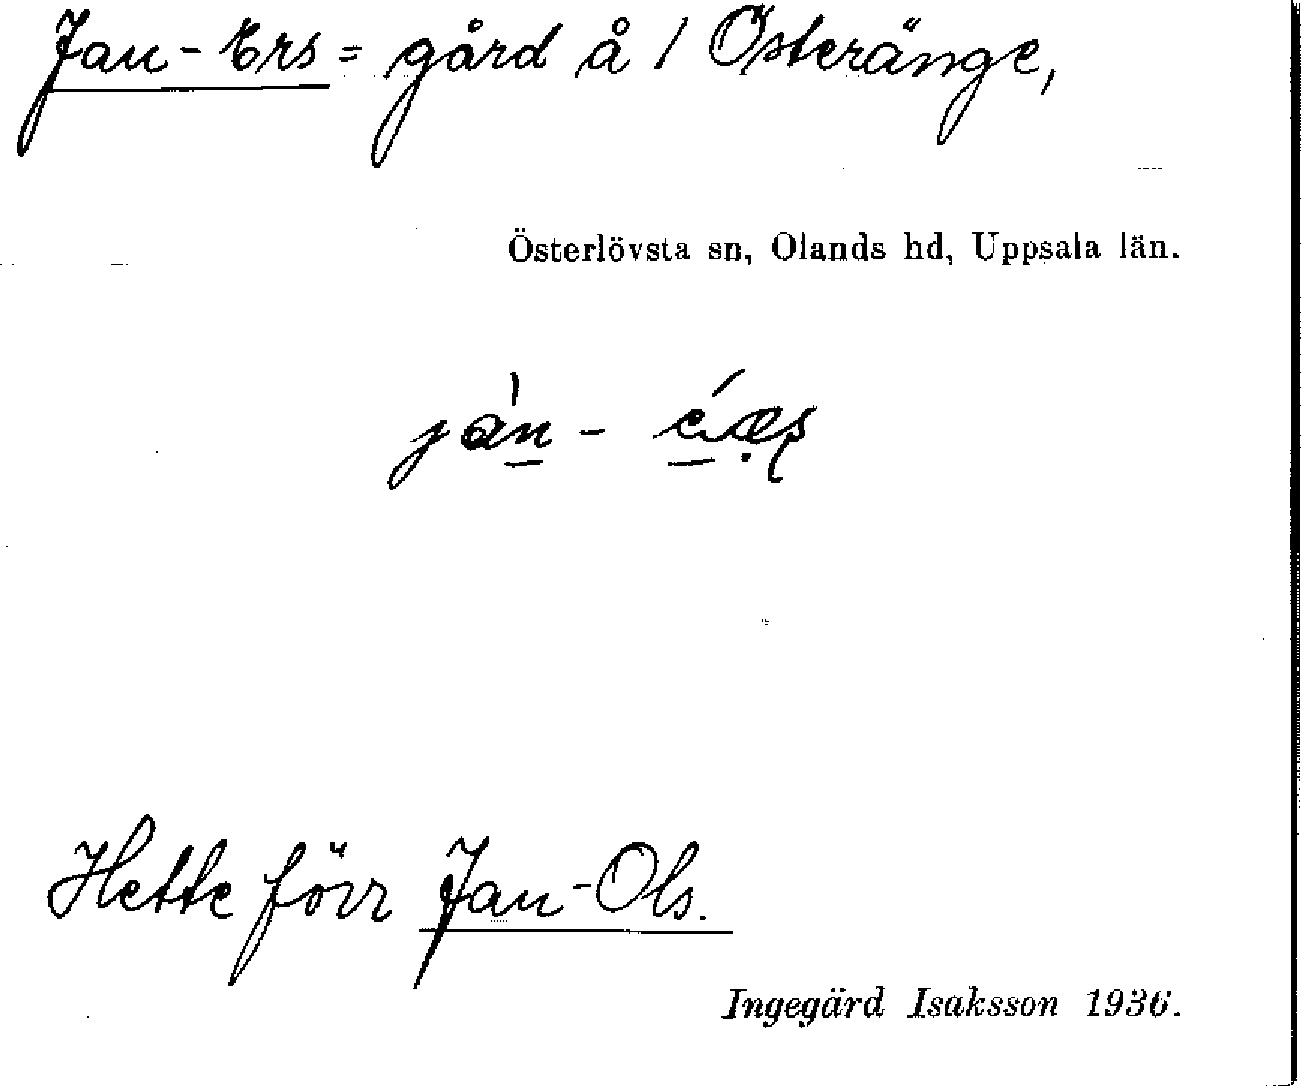 Jan-Ers = gård å 1 Österänge,
Österlövsta sn, Olands hd, Uppsala län.
Hette förr Jan-Ols.
Ingegärd Isaksson 1936.